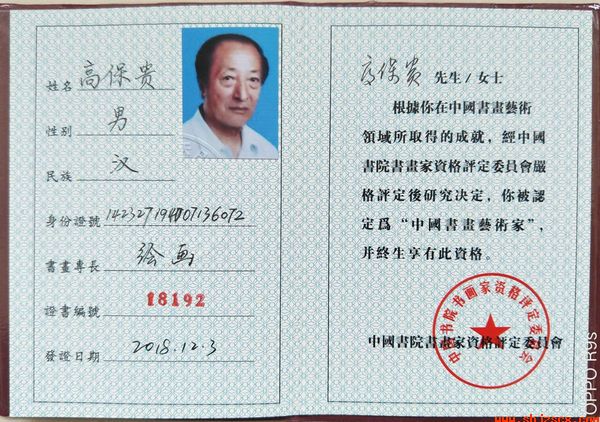 姓名 高保贵
性别 男
民族 汉
身份證號 142327194707136072
書畫專長 绘画
證書編號 18192
發證日期 2018.12.3
高保贵 先生/女士
根據你在中國書畫藝術
領域所取得的成就，經中國
書院書畫家資格評定委員會嚴
格評定後研究决定，你被認
定爲“中國書畫藝術家”，
并終生享有此資格。
中國書院書畫家資格評定委員會
中国书院书画家资格评定委员会
OPPO R9s